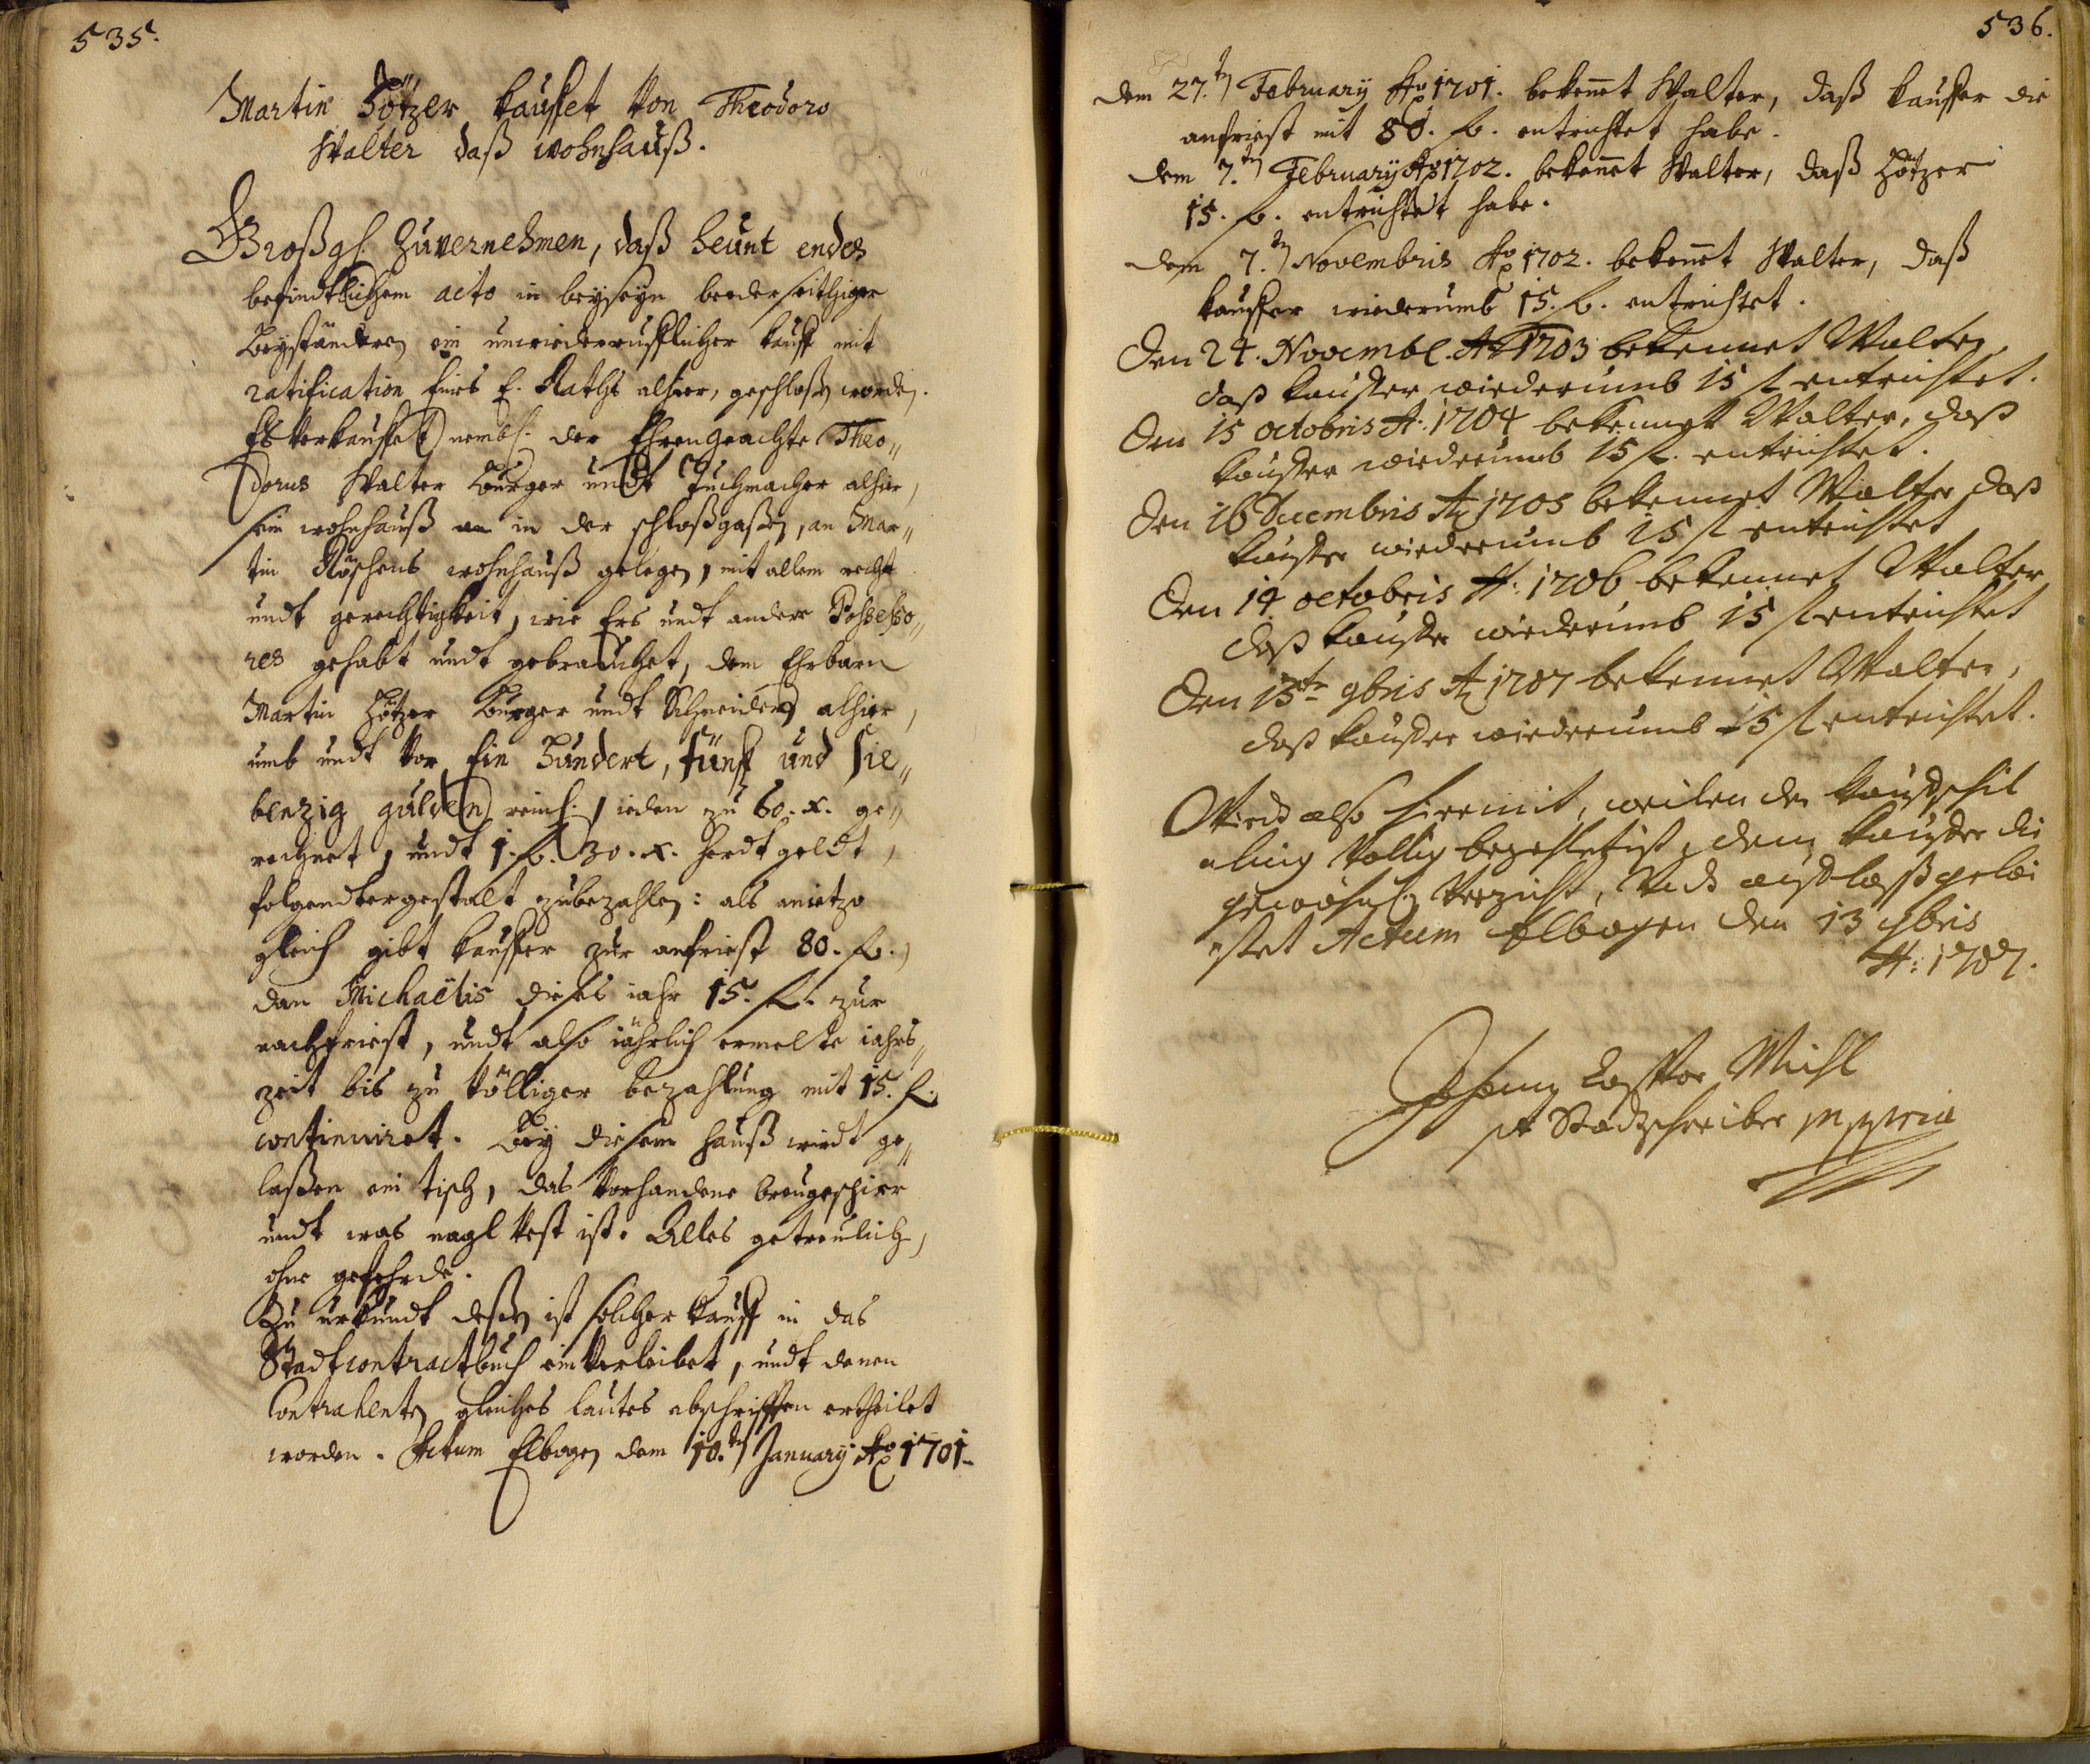 535.
Martin Zötzer kauffet von Theodoro
Walter daß wohnhauß.
zuvernehmen, daß heunt endes
befindtlichem acto in beyseyn beederseithiger
Beyständten ein unwiederrufflicher kauff mit
ratification eines E. Raths alhier, geschloßen worden.
Es verkauffet nembl. der Ehrengeachte Theo„
dorus Walter Burger undt Tuchmacher alhier,
sein wohnhauß in der schloßgaßen, an Mar„
tin wohnhauß gelegen, mit allem recht
undt gerechtigkeit, wie Ers undt andere Possesso„
res gehabt undt gebrauchet, dem Ehrbarn
Martin Zötzer Burger undt Schneider alhier,
umb undt vor Ein Hundert, fünff und sie„
benzig gulden reinl. ieden zu 60. x. ge„
rechnet, undt 1. fl. 30. x. herdtgeldt,
folgendtergestalt zubezahlen: als anietzo
gleich gibt kauffer zur anfriest 80. fl.,
dan Michaëlis dieses iahr 15. fl. zur
nachfriest, undt also iährlich ermelte iahrs„
zeit bis zu völliger bezahlung mit 15. fl.
continuiret. Bey diesem hauß wirdt ge„
laßen ein tisch, das vorhandene breugeschirr
undt was nagl vest ist. Alles getreulich,
ohne gefehrde.
Zu urkundt deßen ist solcher kauff in das
Stadtcontractbuch einverleibet, undt denen
Contrahenten gleiches lautes abschrifften ertheilet
worden. Actum Elbogen dem 10.ten January Ao 1701.
536.
dem 27.ten February Ao 1701. bekennet Walter, daß kauffer die
anfriest mit 80. fl. entrichtet habe.
dem 7.ten February Ao 1702. bekennet Walter, daß Zötzer
15. fl. entrichtet habe.
dem 7.ten Novembris Ao 1702. bekennet Walter, daß
kauffer wiederumb 15. fl. entrichtet.
Den 24. Novembr. Ao 1703 bekennet Walter,
daß kauffer wiederumb 15 fl entrichtet.
Den 15 octobris A: 1704 bekennet Walter, daß
kauffer wiederumb 15 fl. entrichtet.
Den 16 Decembris Ao 1705 bekennet Walter daß
kauffer wiederumb 15 fl entrichtet
Den 14 octobris A: 1706 bekennet Walter
daß kauffer wiederumb 15 fl entrichtet
Den 13te 9bris Ao 1707 bekennet Walter,
daß kauffer wiederumb 15 fl entrichtet.
Wird also hiermit, weilen der kauffschil
ling völlig bezahlet ist, dem kauffer die
gewöhnl. Verzicht, gelei
stet Actum Elbogen den 13 9bris
A: 1707.
Johann Michl
pt Stadtschreiber mppria